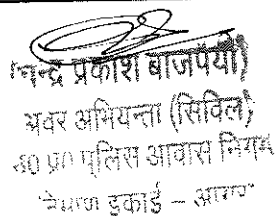 चन्द्र प्रकाश बाजपेयी)
अवर अभियन्ता (सिविल)
उ0 प्र0 पुलिस आवास निगम
इकाई – आगरा